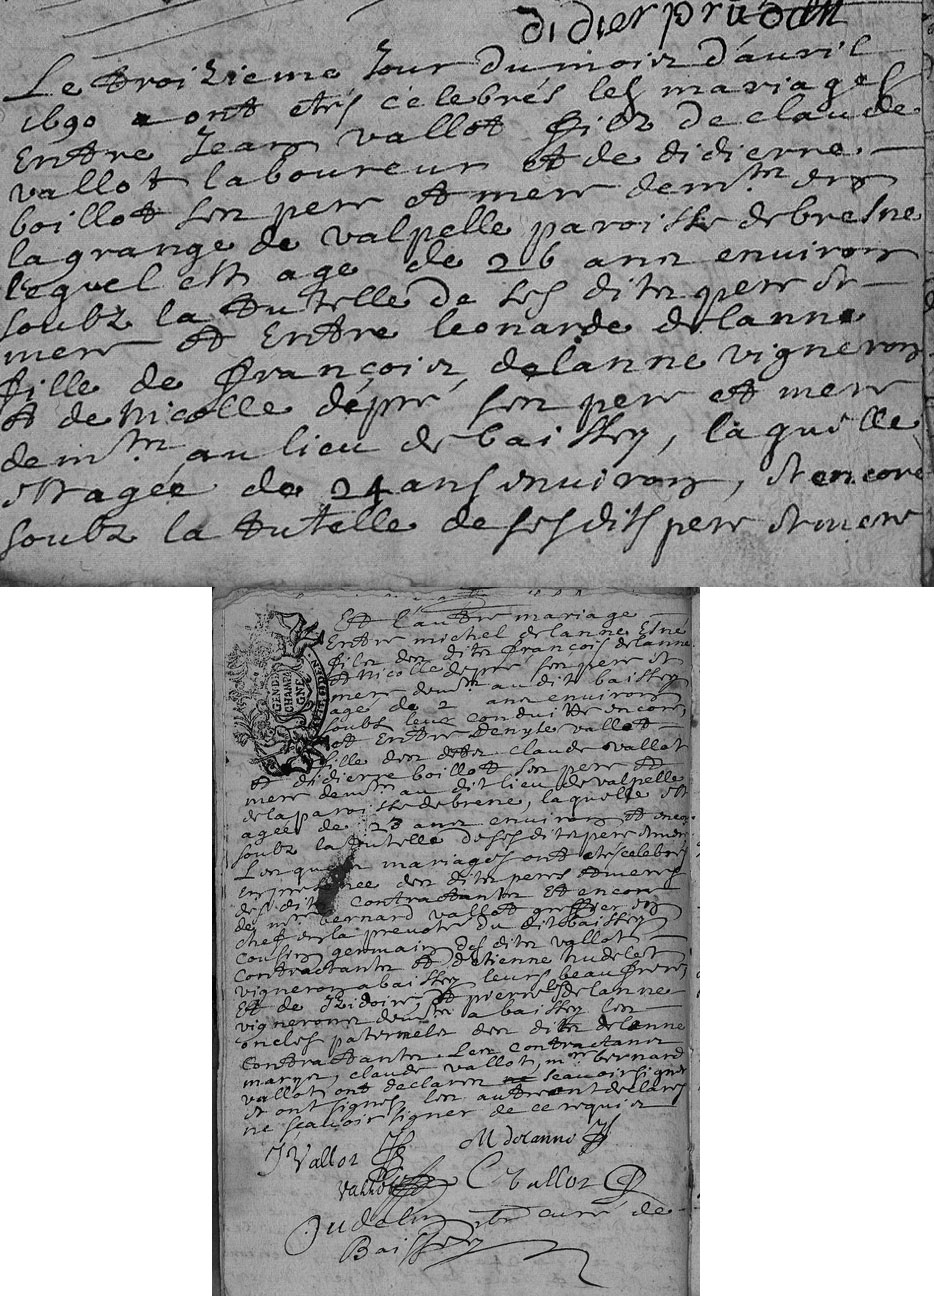 didier prudan
Le troizieme Jour du mois d'avril
1690 ont etés celebrés les mariages
Entre Jean vallot filz de claude
vallot laboureur et de didierre
boillot ses pere et mere demrtz en
la grange de valpelle paroisse de bresne
lequel est age de 26 ans environ
soubz la tutelle de ses ditz pere et
mere et Entre leonarde delanne
fille de françois delanne vigneron
et de Nicolle dépré ses pere et mere
demrtz au lieu de baissey, laquelle
est agee de 24 ans environ, et encore
soubz la tutelle de ses dits pere et mere
Et l'autre mariage
Entre michel delanne
filz des ditz françois delanne
et Nicolle depré ses pere et
mere au dit baissey
agé de 2 ans environ
soubz leur conduitte encore
et Entre Denyse vallot
fille des ditz claude vallot
et didierre boillot ses pere et
mere au dit lieu de valpelle
de la paroisse de brene, laquelle est
agee de 23 ans environ et encor
soubz la tutelle de ses ditz pere et mere
Lesquels mariages ont etes celebrés
en presence des ditz peres et meres
des ditz contractantz Et encore
de mre bernard vallot greffier en
chef de la prevoté du dit baissey
cousin germain des ditz vallot
contractantz et d'etienne hudelet
vigneron a baissey leurs beau frere
Et de Izidoire et pierre delanne
vignerons a baissey les
oncles paternelz des ditz delanne
contractantz. Les contractans
maryez, claude vallot, mre bernard
vallot ont declarez sçavoir signer
et ont signes les autres ont declarés
ne sçavoir signer de ce requis
J Vallot M delanne
vallot C vallot
Judelin ptre curé de
Baissey